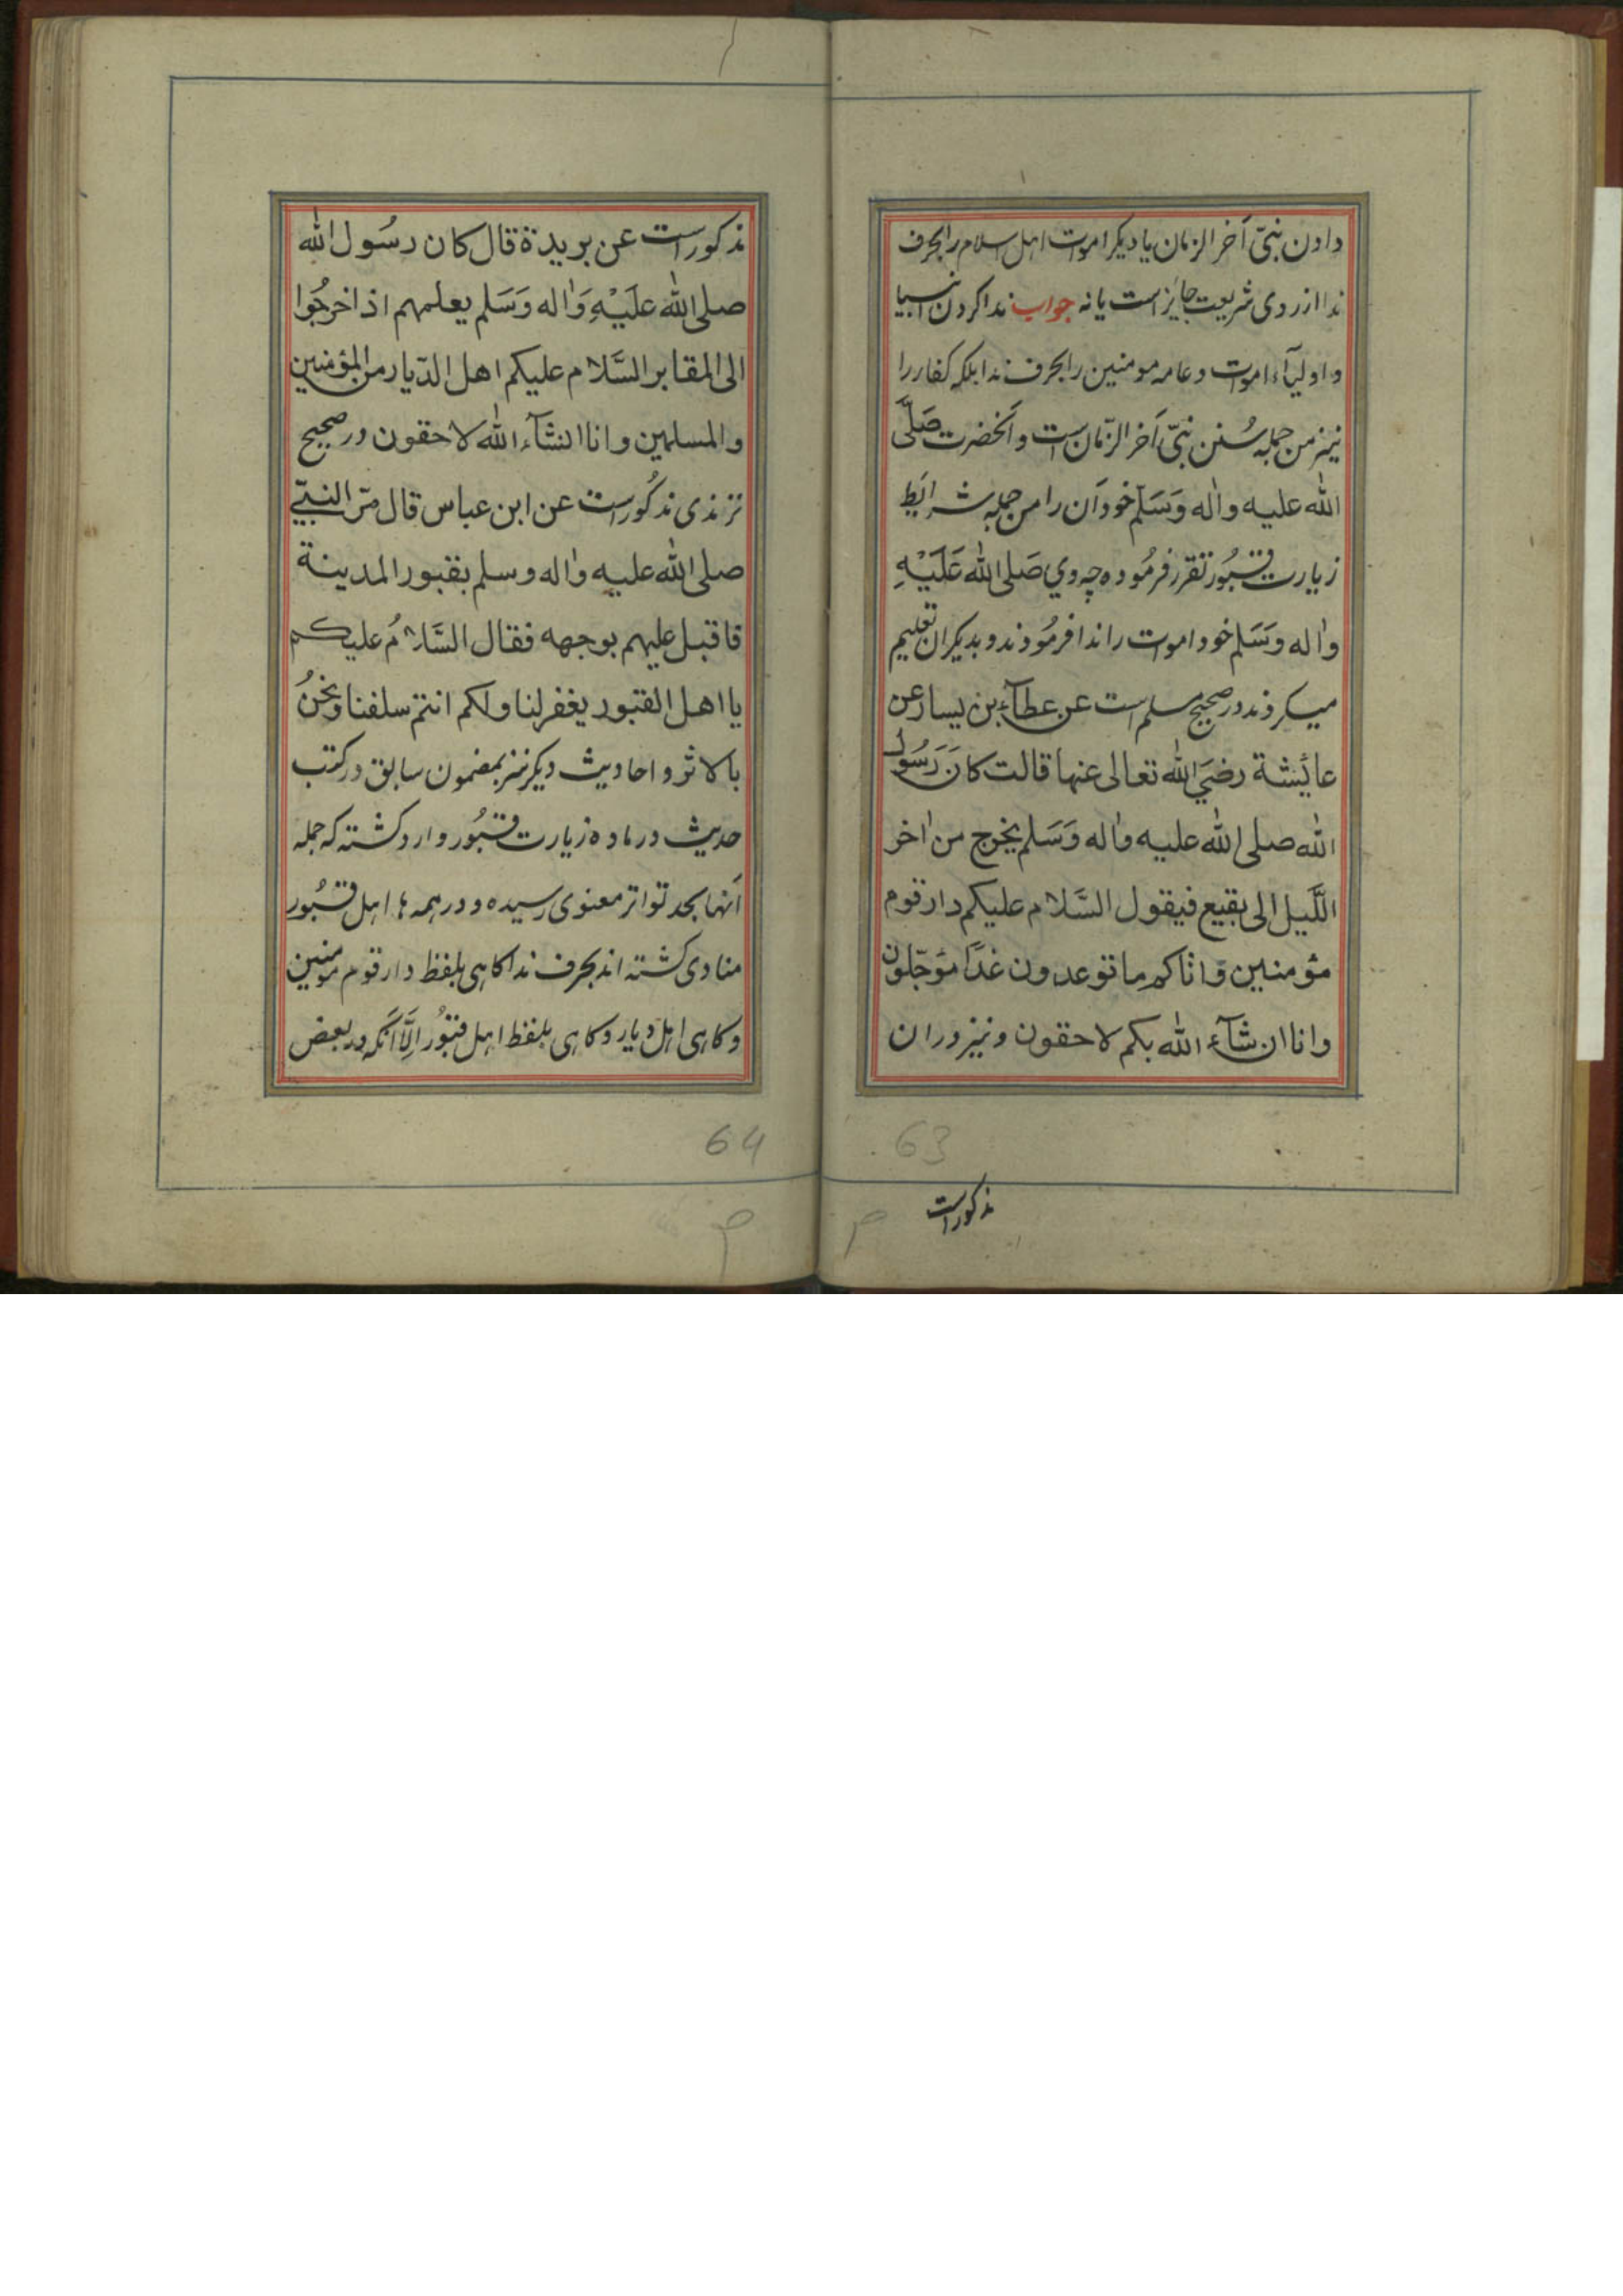 دادن نبیّ آخر الزمان یا دیکر اموات اهل اسلام را بحرف
ندا از روی شریعت جایز است یا نه جواب ندا کردن انبیا
و اولیآء اموات و عامه مومنین را بحرف ندا بلکه کفار را
نیز من جمله سُنن نبیّ آخر الزّمان است و آنحضرت صَلَّی
الله علیه واٰله وَسَلَّم خود آن را من جمله شرایَط
زیارت قبُور تقرر فرمُوده چه وي صَلی الله عَلَیْهِ
واٰله وَسَلم خود اموات را ندا فرمُودند و بدیکران تعلیم
میکردند در صحیح مسلم است عن عطآء بن یسار عن
عائیشة رضيَ الله تعالی عنها قالت کانَ رَسُول
الله صلی الله علیه واٰله وَسَلم یخرج من اٰخر
اللَّیل الی بقیع فیقول السَّلام علیکم دار قوم
مؤمنین وَاتاکم ما توعدون غدًا مؤجّلون
وانا ان شآء الله بکم لاحقون و نیز در ان
مذکور است
63
مذکور است عن بریدة قال کان رسُول الله
صلی الله عَلَیْهِ وَاٰله وَسَلم یعلمهم اذا خرجُوا
الی المقابر السَّلام علیکم اهل الدّیار من المؤمنین
والمسلمین وانا انشآء الله لاحقون در صحیح
ترمذی مذکُور است عن ابن عباس قال مرّ النبیّ
صلی الله علیه واٰله وسلم بقبور المدینة
فاقبل علیهم بوجهه فقال السَّلامُ علیکم
یا اهل القبور یغفر لنا ولکم انتم سلفنا ونحنُ
بالاثر و احادیث دیکر نیز بمضمون سابق در کتب
حدیث در ماده زیارت قبُور وارد کشته که جمله
آنها بحد تواتر معنوی رسیده و در همه ها اهل قبُور
منادی کشته اند بحرف ندا کاهی بلفظ دار قوم مومنین
و کاهی اهل دیار و کاهی بلفظ اهل قبُور اِلَّا آنکه در بعض
64